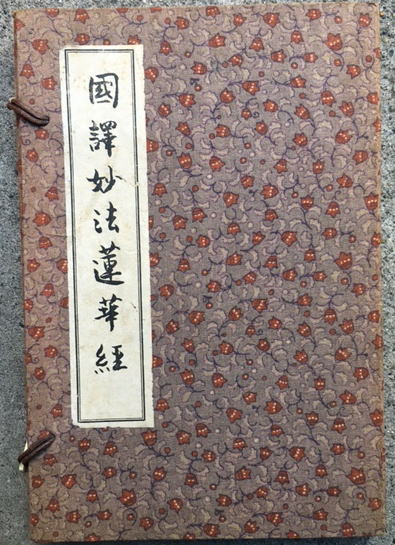 國譯妙法蓮華經